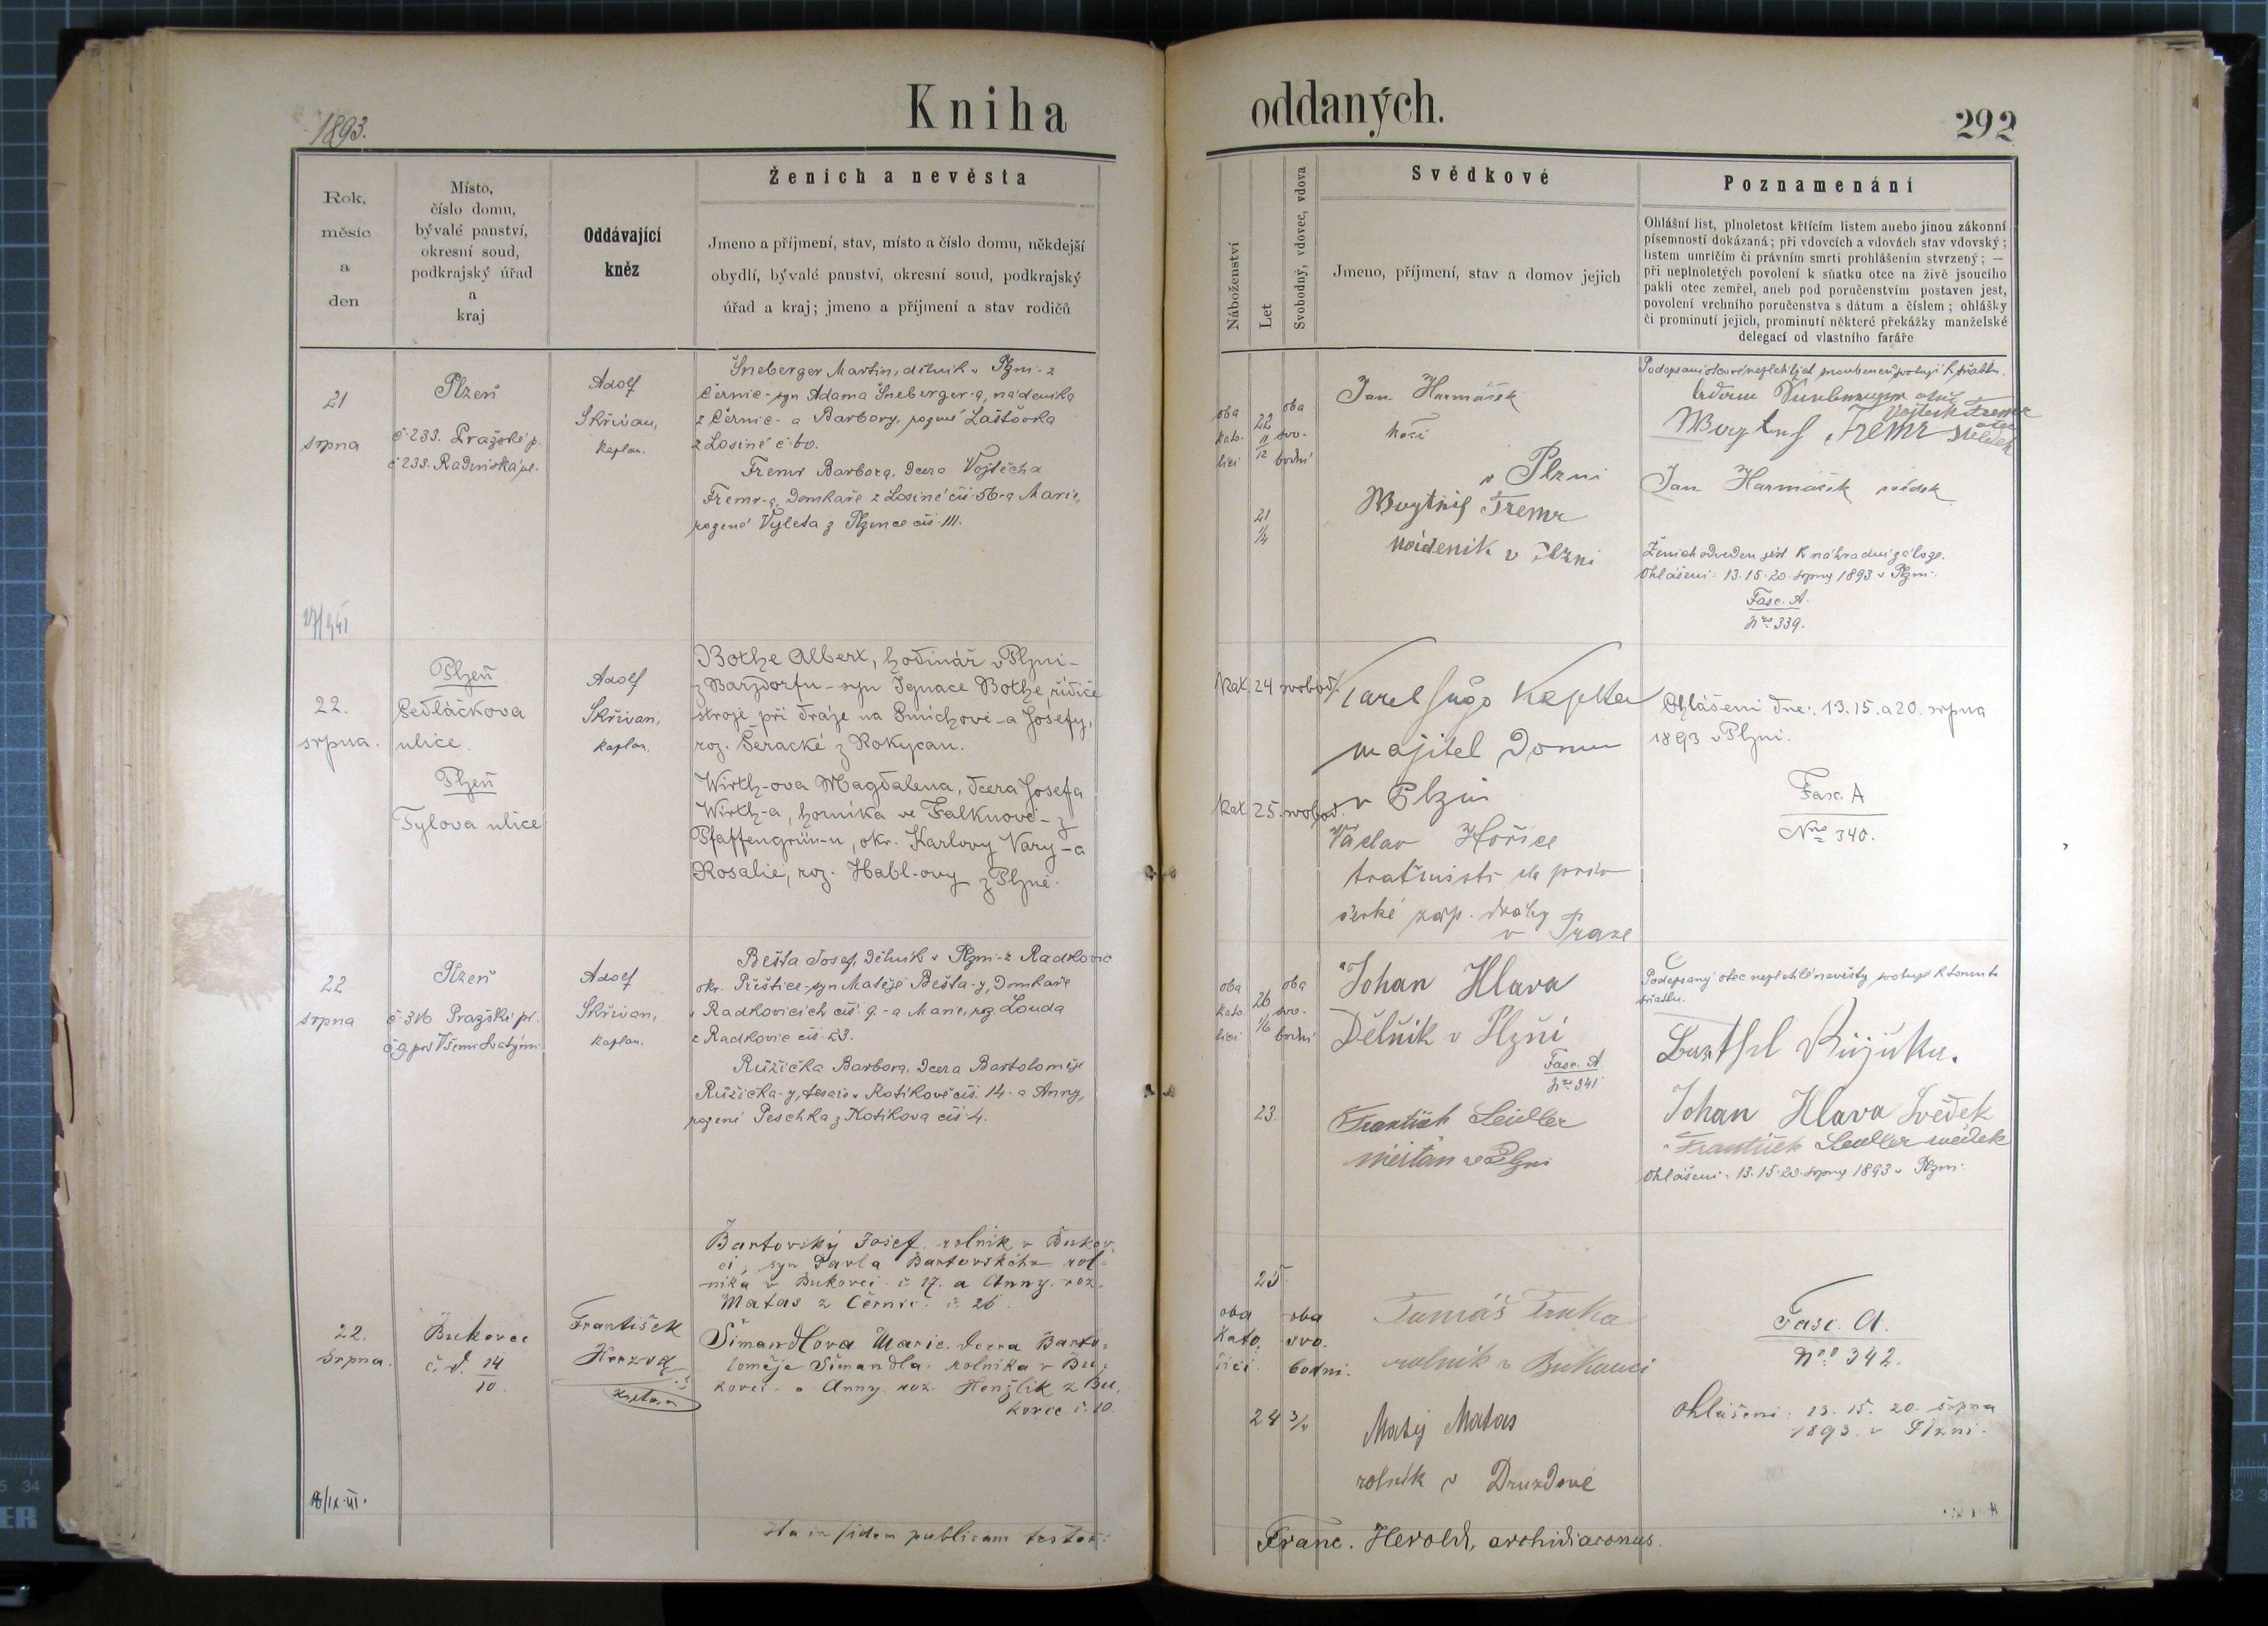 1893.
Kniha
oddaných.
292
Rok,
měsíc
a
den
Místo,
číslo domu,
bývalé panství,
okresní soud,
podkrajský úřad
a
kraj
Oddávající
kněz
Ženich a nevěsta
Jmeno a příjmení, stav, místo a číslo domu, někdejší
obydlí, bývalé panství, okresní soud, podkrajský
úřad a kraj; jmeno a příjmení a stav rodičů
Náboženství
Let
Svobodný, vdovec, vdova
Svědkové
Jmeno, příjmení, stav a domov jejich
Poznamenání
Ohlášní list, plnoletost křticím listem anebo jinou zákonní
písemností dokázaná; při vdovcích a vdovách stav vdovský;
listem umrlčím či právním smrti prohlášením stvrzený; —
při neplnoletých povolení k sňatku otce na živě jsoucího
pakli otec zemřel, aneb pod poručenstvím postaven jest,
povolení vrchního poručenstva s dátum a číslem; ohlášky
či prominutí jejich, prominutí některé překážky manželské
delegací od vlastního faráře
21
srpna
Plzeň
č. 233. Pražské p.
č 233. Radnická ul.
Adolf
Skřivan,
kaplan.
Šneberger Martin, dělník v Plzni - z
Černic - syn Adama Šneberger-a, nádeníka
z Černic - a Barbory, rozené Laštovka
z Losiné č. 60.
Fremr Barbora, dcera Vojtěcha
Fremr-a, domkaře z Losiné čís. 56 - a Marie,
rozené Vyleta z Plzence čís. 111.
oba
kato-
líci
22
11/12
oba
svo-
bodní
21
1/4
Jan Harmáček
kočí
v Plzni
Woytěch Fremr
nádeník v Plzni
Podepsaní otcové nepletilých snoubenců svolují k sňatku.
Vojtěch Fremr
otec
Woytěch Fremr svědek
Jan Harmáček svědek
Ženich odveden jest k náhradní záloze.
Ohlášeni: 13. 15. 20. srpna 1893 v Plzni.
Fasc. A.
Nro 339.
22.
srpna.
Plzeň
Sedláčkova
ulice.
Plzeň
Tylova ulice
Adolf
Skřivan,
kaplan.
Bothe Albert, hodinář v Plzni -
z Barzdorfu - syn Ignace Bothe řidiče
strojů při dráze na Smíchově - a Josefy,
roz. Seracké z Rokycan.
Wirth-ova Magdalena, dcera Josefa
Wirth-a, horníka ve Falknově - z
Pfaffengrün-u, okr. Karlovy Vary - a
Rosalie, roz. Habl-ovy z Plzně.
kat. 24 svobod.
kat. 25. svobod.
Karel Hugo Kepka
majitel domu
v Plzni
Václav Hořice
tratmistr
české záp. dráhy
v Praze
Ohlášeni dne: 13. 15. a 20. srpna
1893 v Plzni.
Fasc. A
Nro 340.
22
srpna
Plzeň
č 316 Pražské př.
č. 9 pod Všemi Svatými
Adolf
Skřivan,
kaplan.
Bešta Josef, dělník v Plzni - z Radkovic
okr. Přeštice - syn Matěje Bešta-y, domkaře
v Radkovicích čís. 9. - a Marie, roz. Louda
z Radkovic čís. 23.
Růžička Barbora, dcera Bartoloměje
Růžička-y, tesaře v Kotíkově čís. 14. - a Anny,
rozené Peschka z Kotíkova čís. 4.
oba
kato-
líci
26
1/6
oba
svo-
bodní
23.
Johan Hlava
Dělník v Plzni
Fasc. A
Nro 341
František Seidler
měšťan v Plzni
Podepsaný otec nepletilé nevěsty svoluje k tomuto
sňatku.
Barthl Růžička.
Johan Hlava Svědek
František Seidler svědek
Ohlášeni: 13. 15. 20. srpna 1893 v Plzni.
22.
srpna.
Bukovec
č. d. 14
10.
František
Herzog
kaplan
Bartovský Josef, rolník v Bukov-
ci, syn Pavla Bartovského rol-
níka v Bukovci č. 17. a Anny roz.
Matas z Černic č. 26.
Šimandlova Marie, dcera Barto-
loměje Šimandla, rolníka v Bu-
kovci - a Anny roz. Henžlík z Bu-
kovce č. 10.
oba
kato-
líci
25.
oba
svo-
bodní.
24 3/4
Tomáš Trnka
rolník v Bukovci
Matěj Matas
rolník v Druzdově
Fasc. A.
Nro 342.
Ohlášeni: 13. 15. 20. srpna
1893. v Plzni.
Ita in fidem publicam testor:
Franc. Herold, archidiaconus.